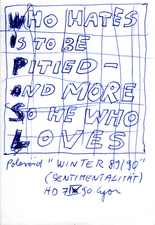 WHO HATES
IS TO BE
PITIED -
AND MORE
SO HE WHO
LOVES
Polaroid "WINTER 89/90"
(SENTIMENTALITÄT)
HO 90 Lyon